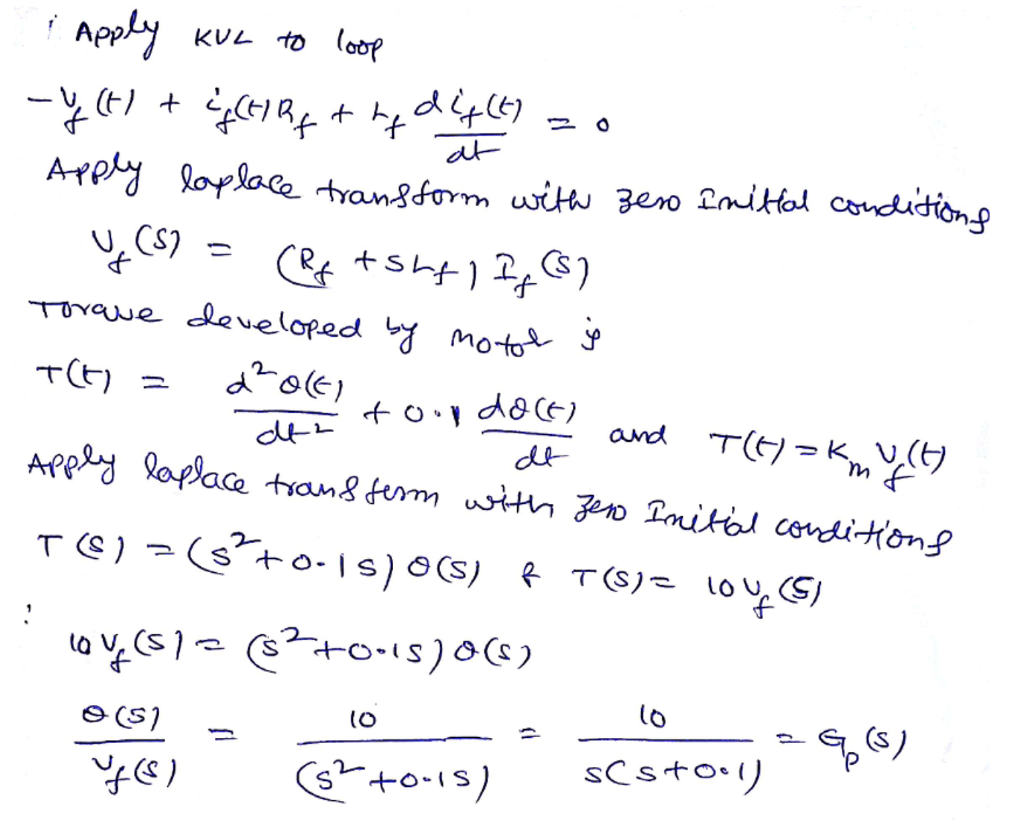 Apply KVL to loop
-V_f(t) + i_f(t) R_f + L_f di_f(t)/dt = 0
Apply laplace transform with zero Initial conditions
V_f(s) = (R_f + sL_f) I_f(s)
Torque developed by motor is
T(t) = d²θ(t)/dt² + 0.1 dθ(t)/dt and T(t) = K_m V_f(t)
Apply laplace transform with zero Initial conditions
T(s) = (s²+0.1s) θ(s) & T(s) = 10 V_f(s)
10 V_f(s) = (s²+0.1s) θ(s)
θ(s)/V_f(s) = 10/(s²+0.1s) = 10/s(s+0.1) = G_p(s)